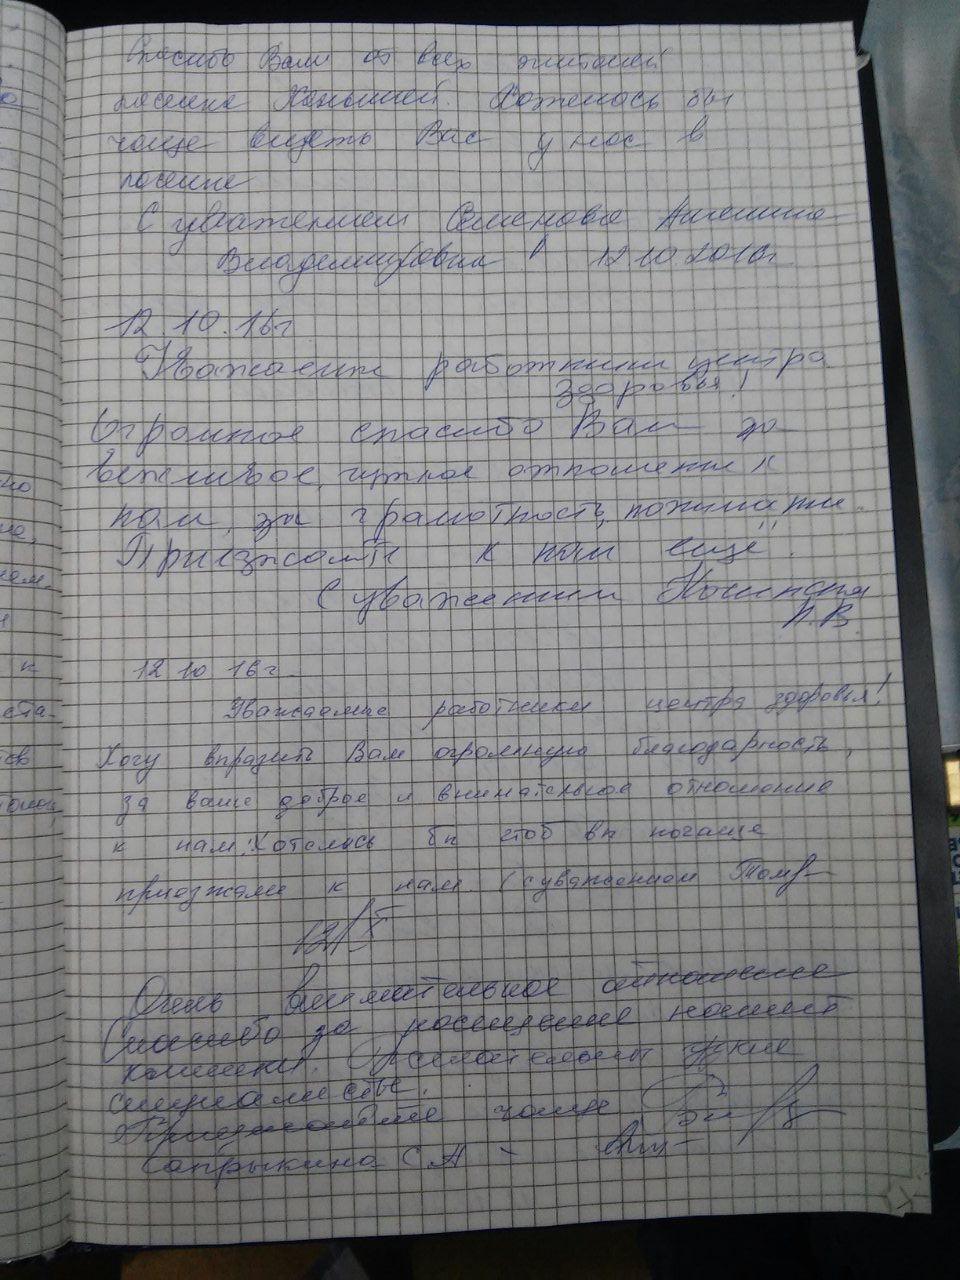 Спасибо Вам от всех жителей
поселка Хотелось бы
чаще видеть Вас у нас в
поселке
С уважением Семенова
Владимировна 12.10.2016г
12.10.16г
Уважаемые работники центра
здоровья!
Огромное спасибо Вам за
вежливое, чуткое отношение к
нам, за грамотность,
Приезжайте к нам ещё.
С уважением
Н.В
12 10 16г.
Уважаемые работники центра здоровья!
Хочу выразить Вам огромную благодарность,
за ваше доброе и внимательное отношение
к нам. Хотелось бы чтоб вы почаще
приезжали к нам. С уважением
12/X
Очень внимательное отношение
Спасибо за посещение нашей
специалисты.
Приезжайте чаще
Сапрыкина С А -